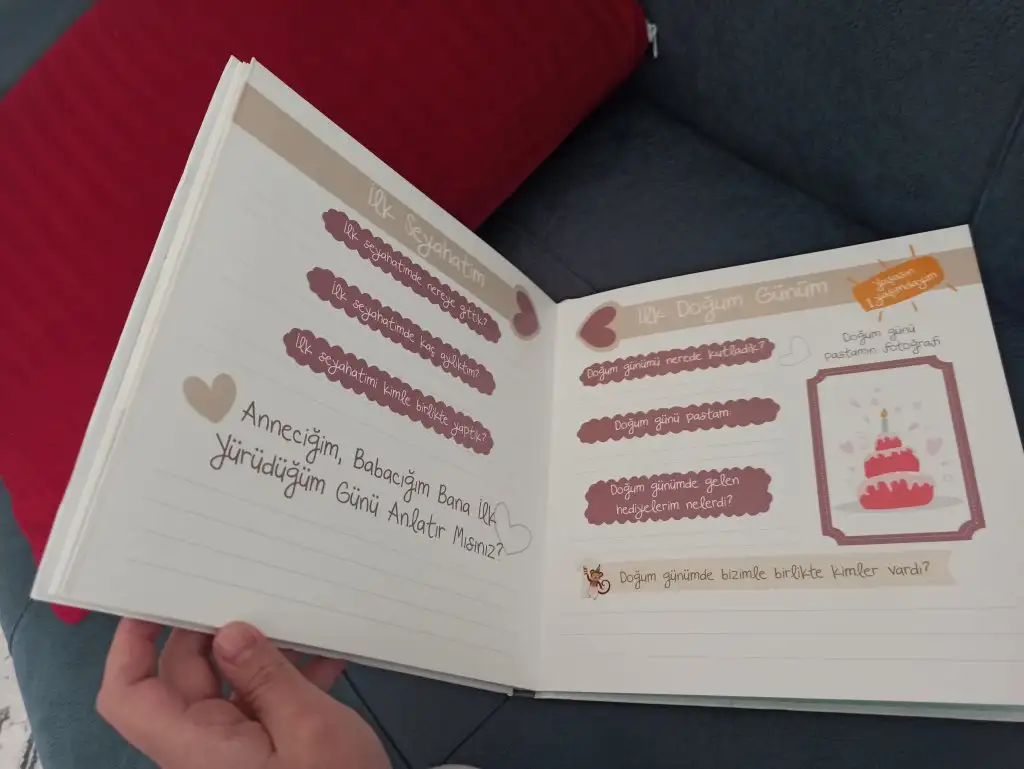 İlk Seyahatim
İlk seyahatimde nereye gittik?
İlk seyahatimde kaç aylıktım?
İlk seyahatimi kimle birlikte yaptık?
Anneciğim, Babacığım Bana İlk
Yürüdüğüm Günü Anlatır Mısınız?
İlk Doğum Günüm
Yaşasın
1 yaşımdayım
Doğum günümü nerede kutladık?
Doğum günü
pastamın fotoğrafı
Doğum günü pastam:
Doğum günümde gelen
hediyelerim nelerdi?
Doğum günümde bizimle birlikte kimler vardı?